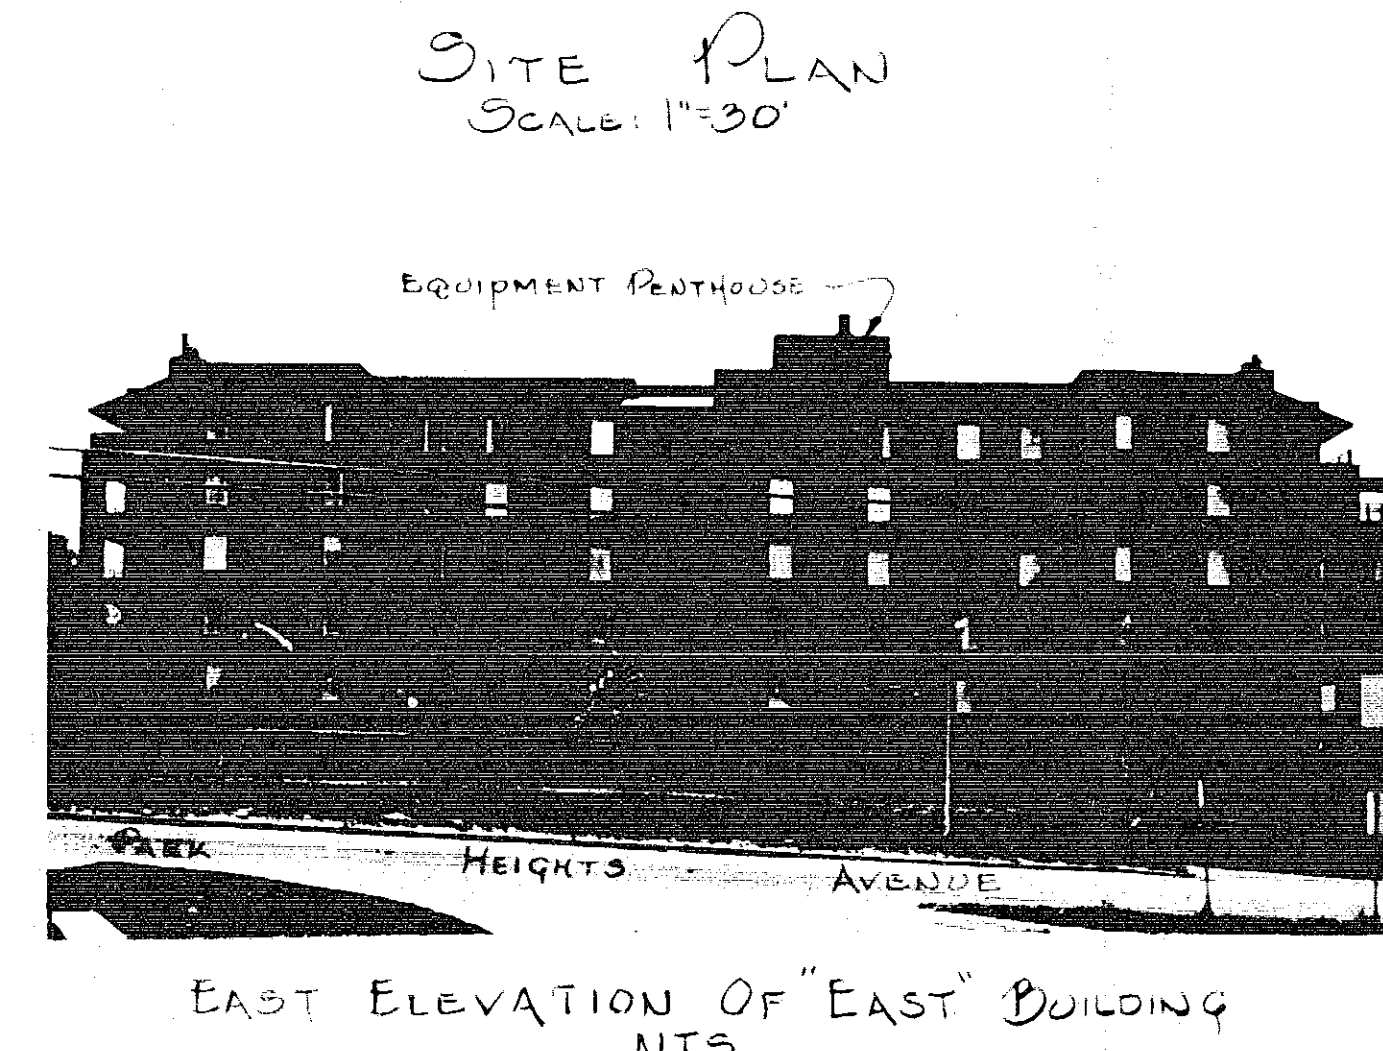 SITE PLAN
SCALE: 1"=30'
EQUIPMENT PENTHOUSE
PARK HEIGHTS AVENUE
EAST ELEVATION OF "EAST" BUILDING
NTS